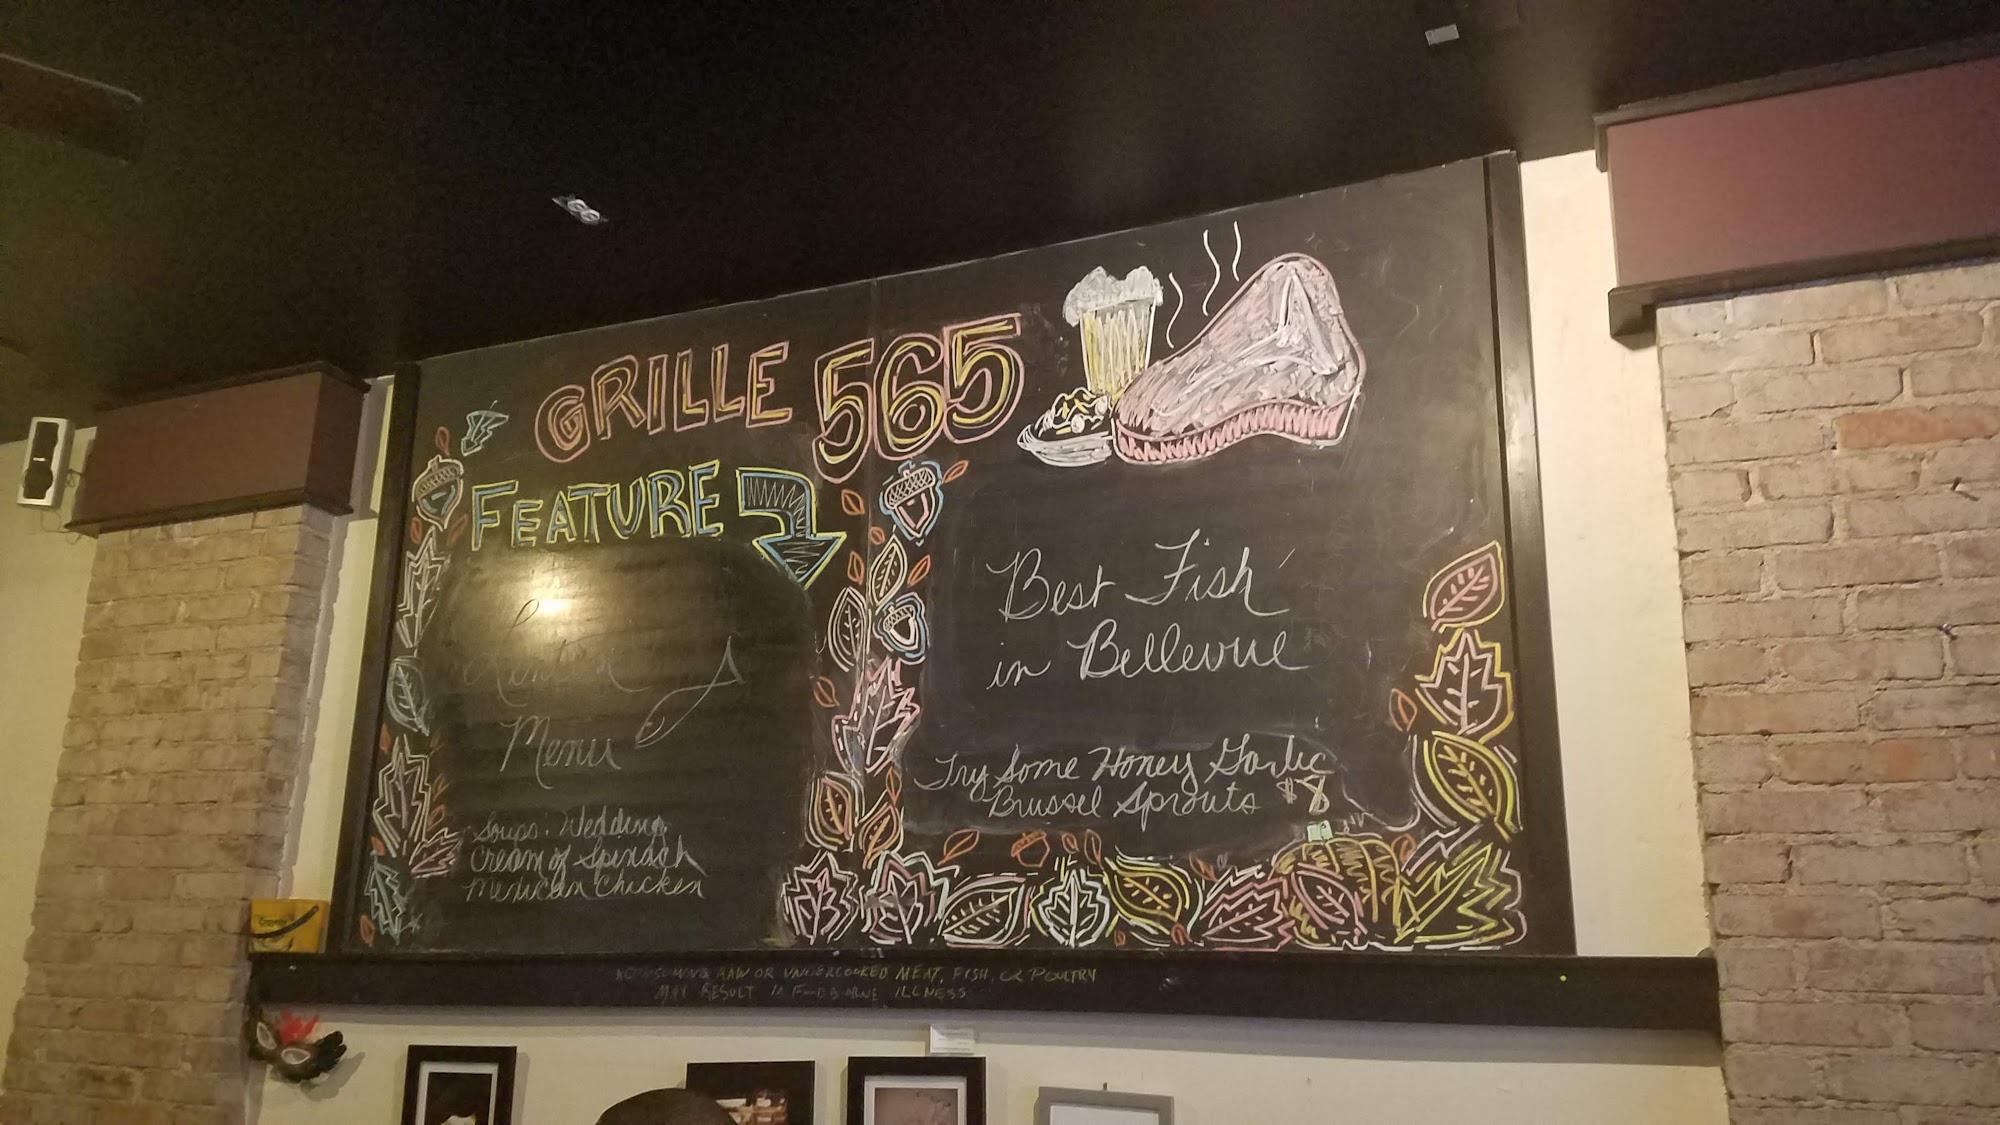 GRILLE 565
FEATURE
Menu
Soups: Wedding
Cream of Spinach
Mexican Chicken
Best Fish
in Bellevue
Try Some Honey Garlic
Brussel Sprouts $8
CONSUMING RAW OR UNDERCOOKED MEAT, FISH, OR POULTRY
MAY RESULT IN FOODBORNE ILLNESS